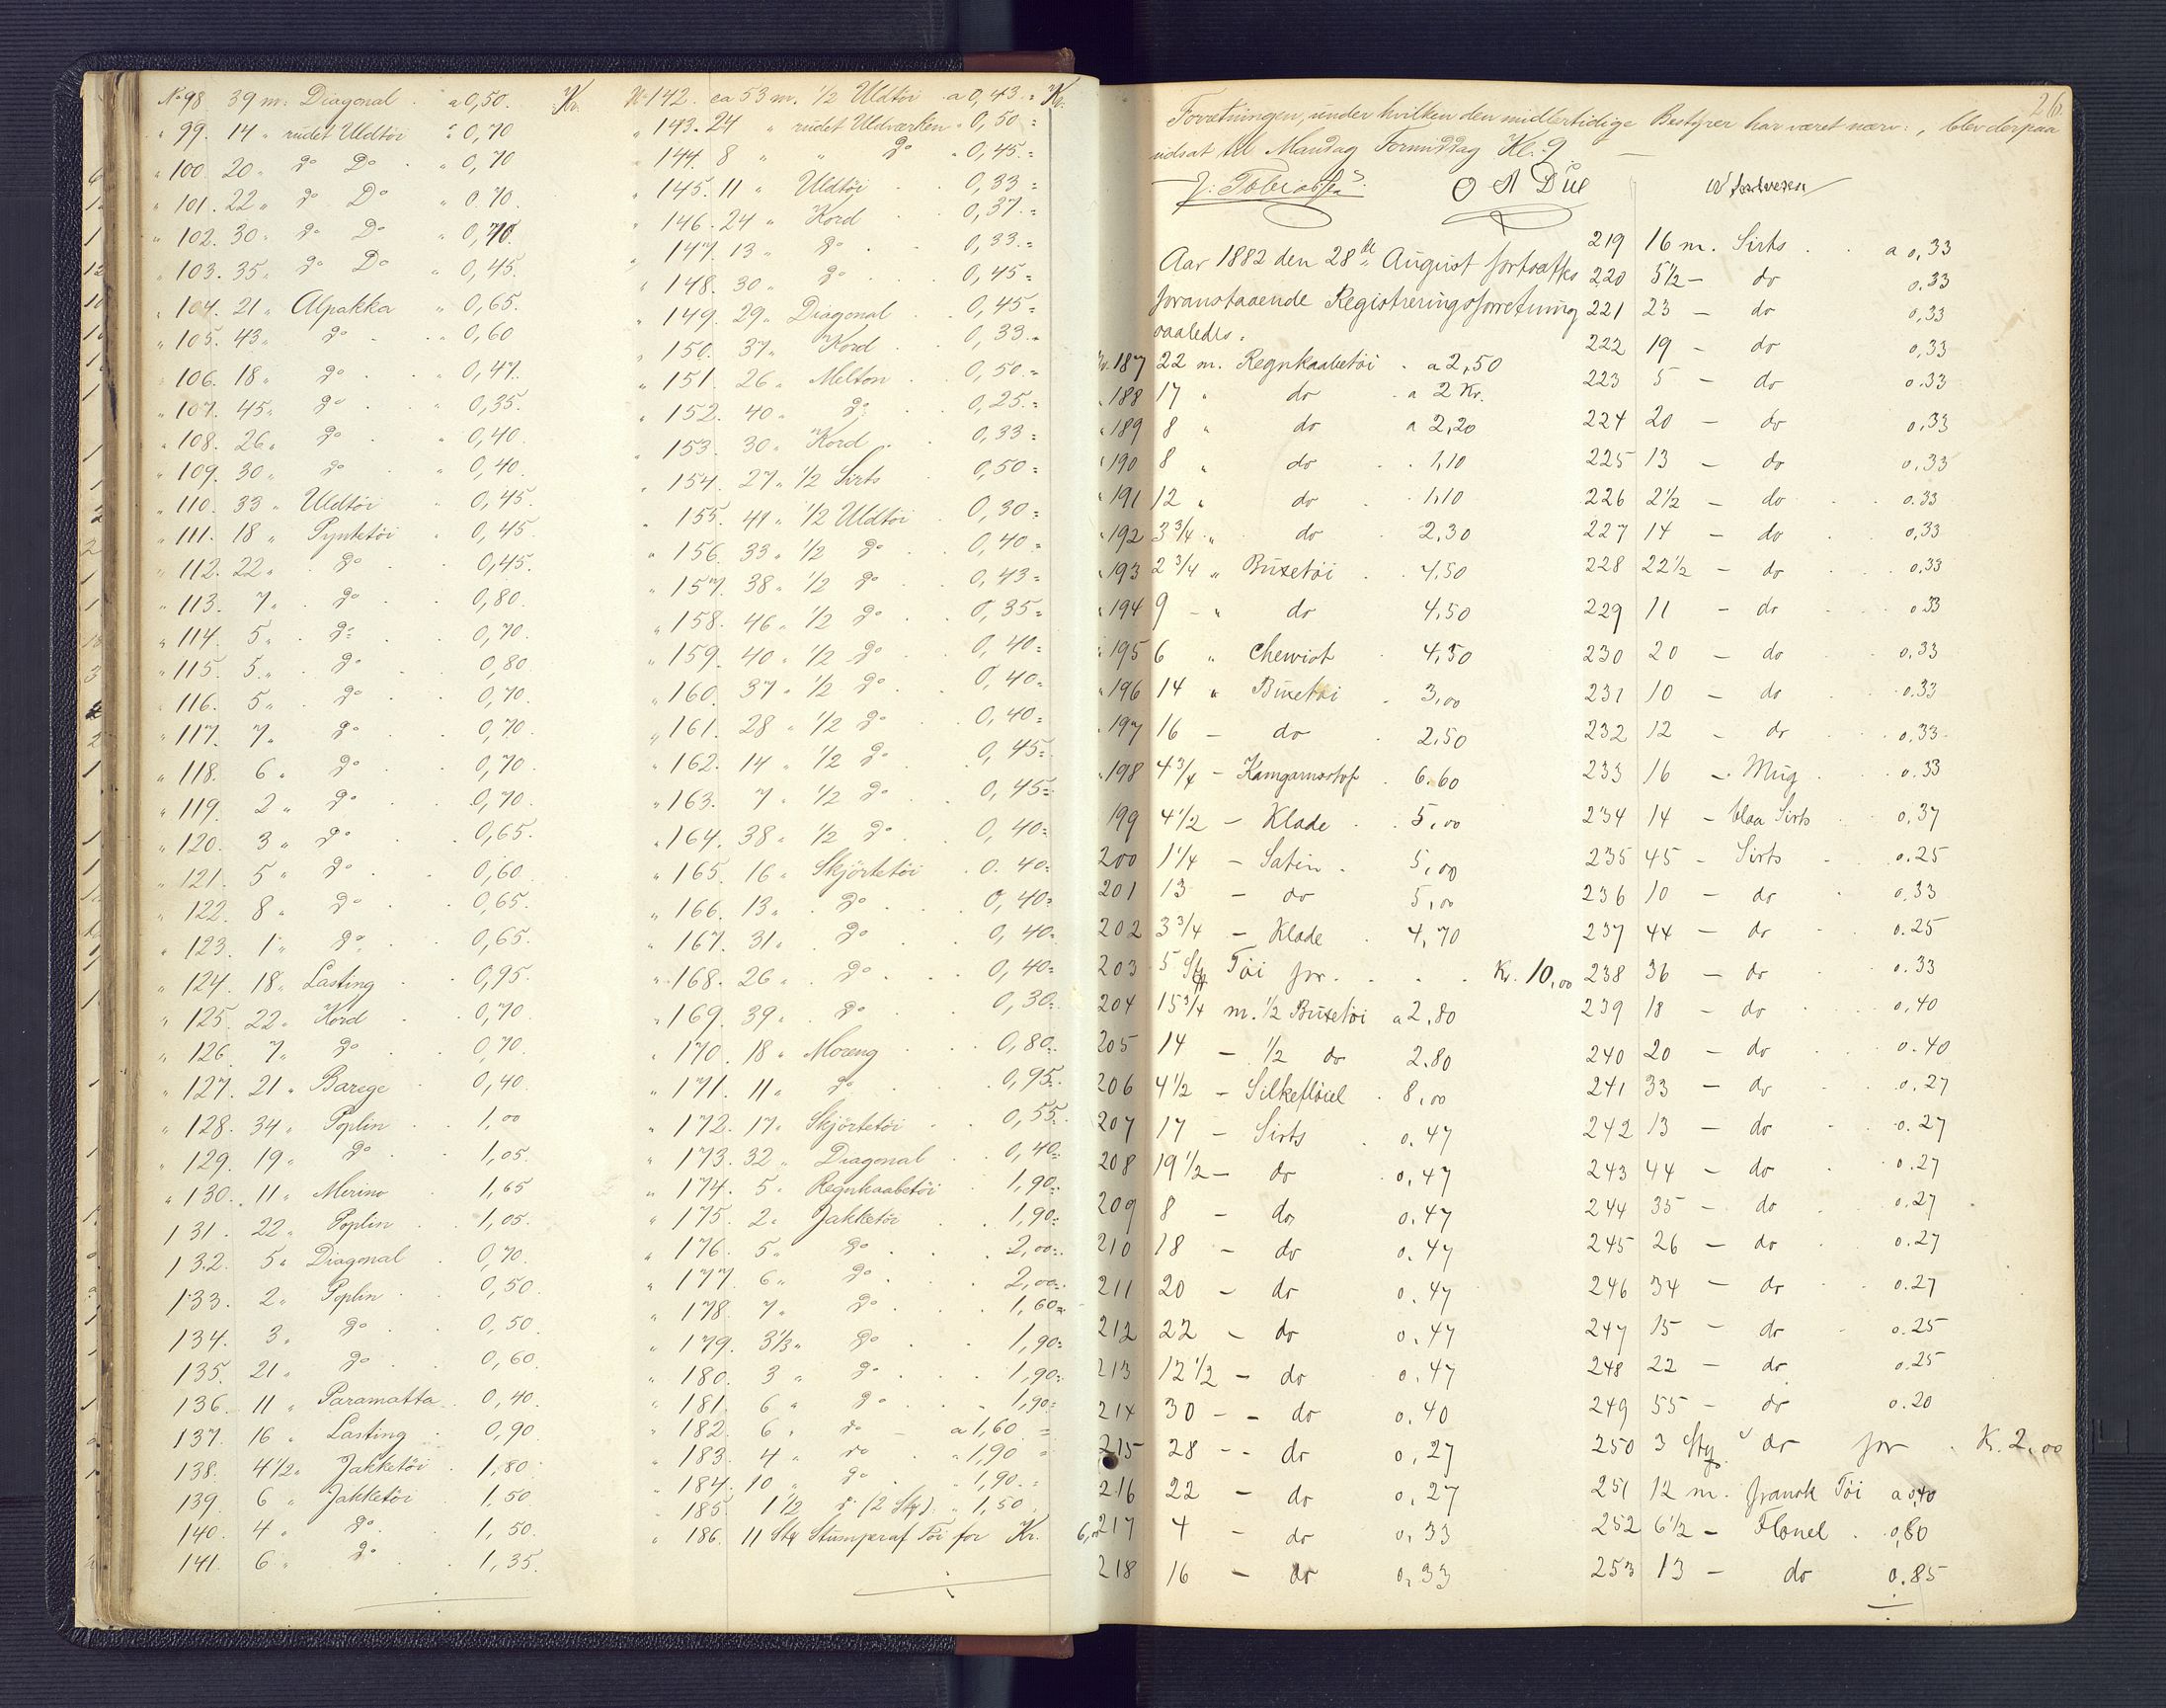 No 98. 39 m. Diagonal . a 0,50. Kr.
" 99. 14 " rudet Uldtöi " 0,70
" 100. 20 " do Do . " 0,70
" 101. 22 " do Do " 0.70.
" 102. 30 " do Do " 0,70.
" 103. 35 " do Do " 0,45.
" 104. 21 " Alpakka " 0,65.
" 105. 43 " do . " 0,60
" 106. 18 " do . " 0,47.
" 107. 45 " do . " 0,35.
" 108. 26 " do . 0,40.
" 109. 30 " do . 0,40.
" 110. 33 " Uldtöi . 0,45.
" 111. 18 " Pyntetöi " 0,45.
" 112. 22 " do . 0,45.
" 113. 7 " do . 0,80.
" 114. 5 " do . 0,70.
" 115. 5 " do . 0,80.
" 116. 5 " do . 0,70.
" 117. 7 " do . 0,70.
" 118. 6 " do . 0,70.
" 119. 2 " do . 0,70.
" 120. 3 " do . 0,65.
" 121. 5 " do . 0,60.
" 122. 8 " do . 0,65.
" 123. 1 " do . 0,65.
" 124. 18 " Lasting . 0,95.
" 125. 22 " Kord . 0,70.
" 126. 7 " do . 0,70.
" 127. 21 " Barege . 0,40.
" 128. 34 " Poplin . 1,00
" 129. 19 " do . 1,05.
" 130. 11 " Merino . 1,65
131. 22 " Poplin . 1,05.
132. 5 " Diagonal . 0,70.
133. 2 " Poplin . 0,50.
134. 3 " do . 0,50.
135. 21 " do . 0,60.
136. 11 " Paramatta . 0,40.
137. 16 " Lasting . 0,90.
138. 4 1/2 " Jakketöi . 1,80.
139. 6 " Jakketöi 1,50
140. 4 " do . 1,50.
141. 6 " do . 1,35.
No 142. ca 53 m. 1/2 Uldtöi a 0,43 = Kr.
" 143. 24 " rudet Uldværken " 0,50 =
" 144. 8 " " do " 0,45 =
" 145. 11 " Uldtöi . 0,33 =
" 146. 24 " Kord . 0,37 =
" 147. 13 " do . 0,33 =
" 148. 30 " do . 0,45 =
" 149. 29 " Diagonal . 0,45 =
" 150. 37 " Kord . 0,33 =
" 151. 26 " Melton . 0,50 =
" 152. 40 " do . 0,25 =
" 153. 30 " Kord . 0,33 =
" 154. 27 " 1/2 Sirts 0,50 =
" 155. 41 " 1/2 Uldtöi . 0,30 =
" 156. 33 " 1/2 do . 0,40 =
" 157. 38 " 1/2 do . 0,43 =
" 158. 46 " 1/2 do . 0,35 =
" 159. 40 " 1/2 do . 0,40 =
" 160. 37 " 1/2 do . 0,40 =
" 161. 28 " 1/2 do . 0,40 =
" 162. 14 " 1/2 do . 0,45 =
" 163. 7 " 1/2 do . 0,45 =
" 164. 38 " 1/2 do . 0,40 =
" 165. 16 " Skjörtetöi . 0.40 =
" 166. 13 " do . 0,40 =
" 167. 31 " do . 0,40 =
" 168. 26 " do . 0,40 =
" 169. 39 " do . 0,30 =
" 170. 18 " Moreng . 0,80 =
" 171. 11 " do . 0,95 =
" 172. 17 " Skjörtetöi . 0,55 =
" 173. 32 " Diagonal . 0,40 =
" 174. 5 " Regnkaabetöi 1,90 =
" 175. 2 " Jakketöi . 1,90 =
" 176. 5 " do . 2,00 =
" 177. 6 " do . 2,00 =
" 178. 7 " do . 1,60 =
" 179. 3 1/3 " do . 1,90 =
" 180. 3 " do . 1,90 =
" 181. 6 " do . 1,90 =
" 182. 6 " do - a 1,60 =
" 183. 4 " do " 1,90 =
" 184. 10 " do . 1,90 =
" 185. 1 1/2 do (2 Stk) " 1,50
" 186. 11 Stk Stumper af Töi for Kr. 6,00
26
Forretningen, under hvilken den midlertidige Bestyrer har været nærv:, blev derpaa
udsat til Mandag Formiddag Kl. 9
J: Tobiassen O A Due
Aar 1882 den 28de August fortsattes
foranstaaende Registreringsforretning
saaledes.
No. 187 22 m. Regnkaabetöi . a 2,50
" 188 17 " do . a 2 Kr.
" 189 8 " do a 2,20
" 190 8 " do . . 1,10
" 191 12 " do . 1,10
" 192 3 3/4 " do . 2,30
" 193 2 3/4 " Buxetöi . . 4,50
" 194 9 - " do 4,50
" 195 6 " Cheviot . 4,50
" 196 14 " Buxetöi . 3,00
" 197 16 - do . 2,50
" 198 4 3/4 - Kamgarnsstof . 6.60
199 4 1/2 - Klæde . . 5,00
200 1 1/4 - Satin . 5,00
201 13 - do 5,00
202 3 3/4 - Klæde . 4,70
203 5 Stk Töi for . . . Kr. 10,00
204 15 3/4 m. 1/2 Buxetöi a 2,80
205 14 - 1/2 do 2.80
206 4 1/2 - Silkefløiel . 8,00
207 17 - Sirts . 0.47
208 19 1/2 - do 0.47
209 8 - do 0.47
210 18 - do 0.47
211 20 - do 0.47
212 22 - do 0.47
213 12 1/2 - do 0.47
214 30 - - do 0.40
215 28 - - do 0,27
216 22 - do 0.27
217 4 - do 0,33
218 16 - do 0,33
219 16 m. Sirts . . a 0,33
220 5 1/2 - do 0.33
221 23 - do 0,33
222 19 - do 0,33
223 5 - do 0.33
224 20 - do 0.33
225 13 - do 0.33
226 2 1/2 - do . 0.33
227 14 - do . 0,33
228 22 1/2 - do . 0.33
229 11 - do . 0.33
230 20 - do . 0.33
231 10 - do . 0.33
232 12 - do . 0.33
233 16 - Mug . 0.33
234 14 - blaa Sirts . 0.37
235 45 - Sirts . 0.25
236 10 - do . 0.33
237 44 - do . 0.25
238 36 - do . 0.33
239 18 - do . 0,40
240 20 - do . 0.40
241 33 - do . 0.27
242 13 - do . 0.27
243 44 - do . 0.27
244 35 - do . 0.27
245 26 - do . 0.27
246 34 - do . 0.27
247 15 - do . 0.25
248 22 - do . 0.25
249 55 - do 0.20
250 3 Stk do for . K. 2,00
251 12 m. fransk Töi a 0,40
252 6 1/2 - Flonel . 0,80
253 13 - do 0.85